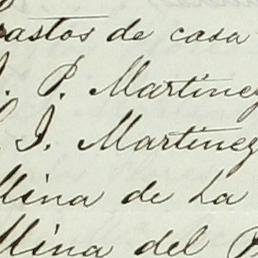 Gastos de casa
J. P. Martinez
J. Martinez
Mina de La
Mina del P